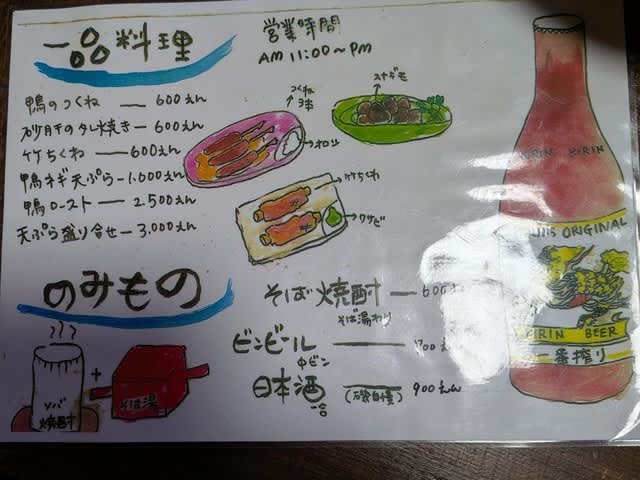 一品料理
営業時間
AM 11:00〜PM
鴨のつくね — 600えん
砂肝のタレ焼き — 600えん
竹ちくわ — 600えん
鴨ネギ天ぷら — 1.000えん
鴨ロースト — 2.500えん
天ぷら盛り合せ — 3,000えん
つくね
3本
オロシ
スナギモ
竹ちくわ
ワサビ
のみもの
そば焼酎 — 600
そば湯わり
ビンビール — 700え
中ビン
日本酒 (磯自慢) 900えん
一合
ソバ
焼酎
+
そば湯
KIRIN KIRIN
ORIGINAL
KIRIN BEER
一番搾り